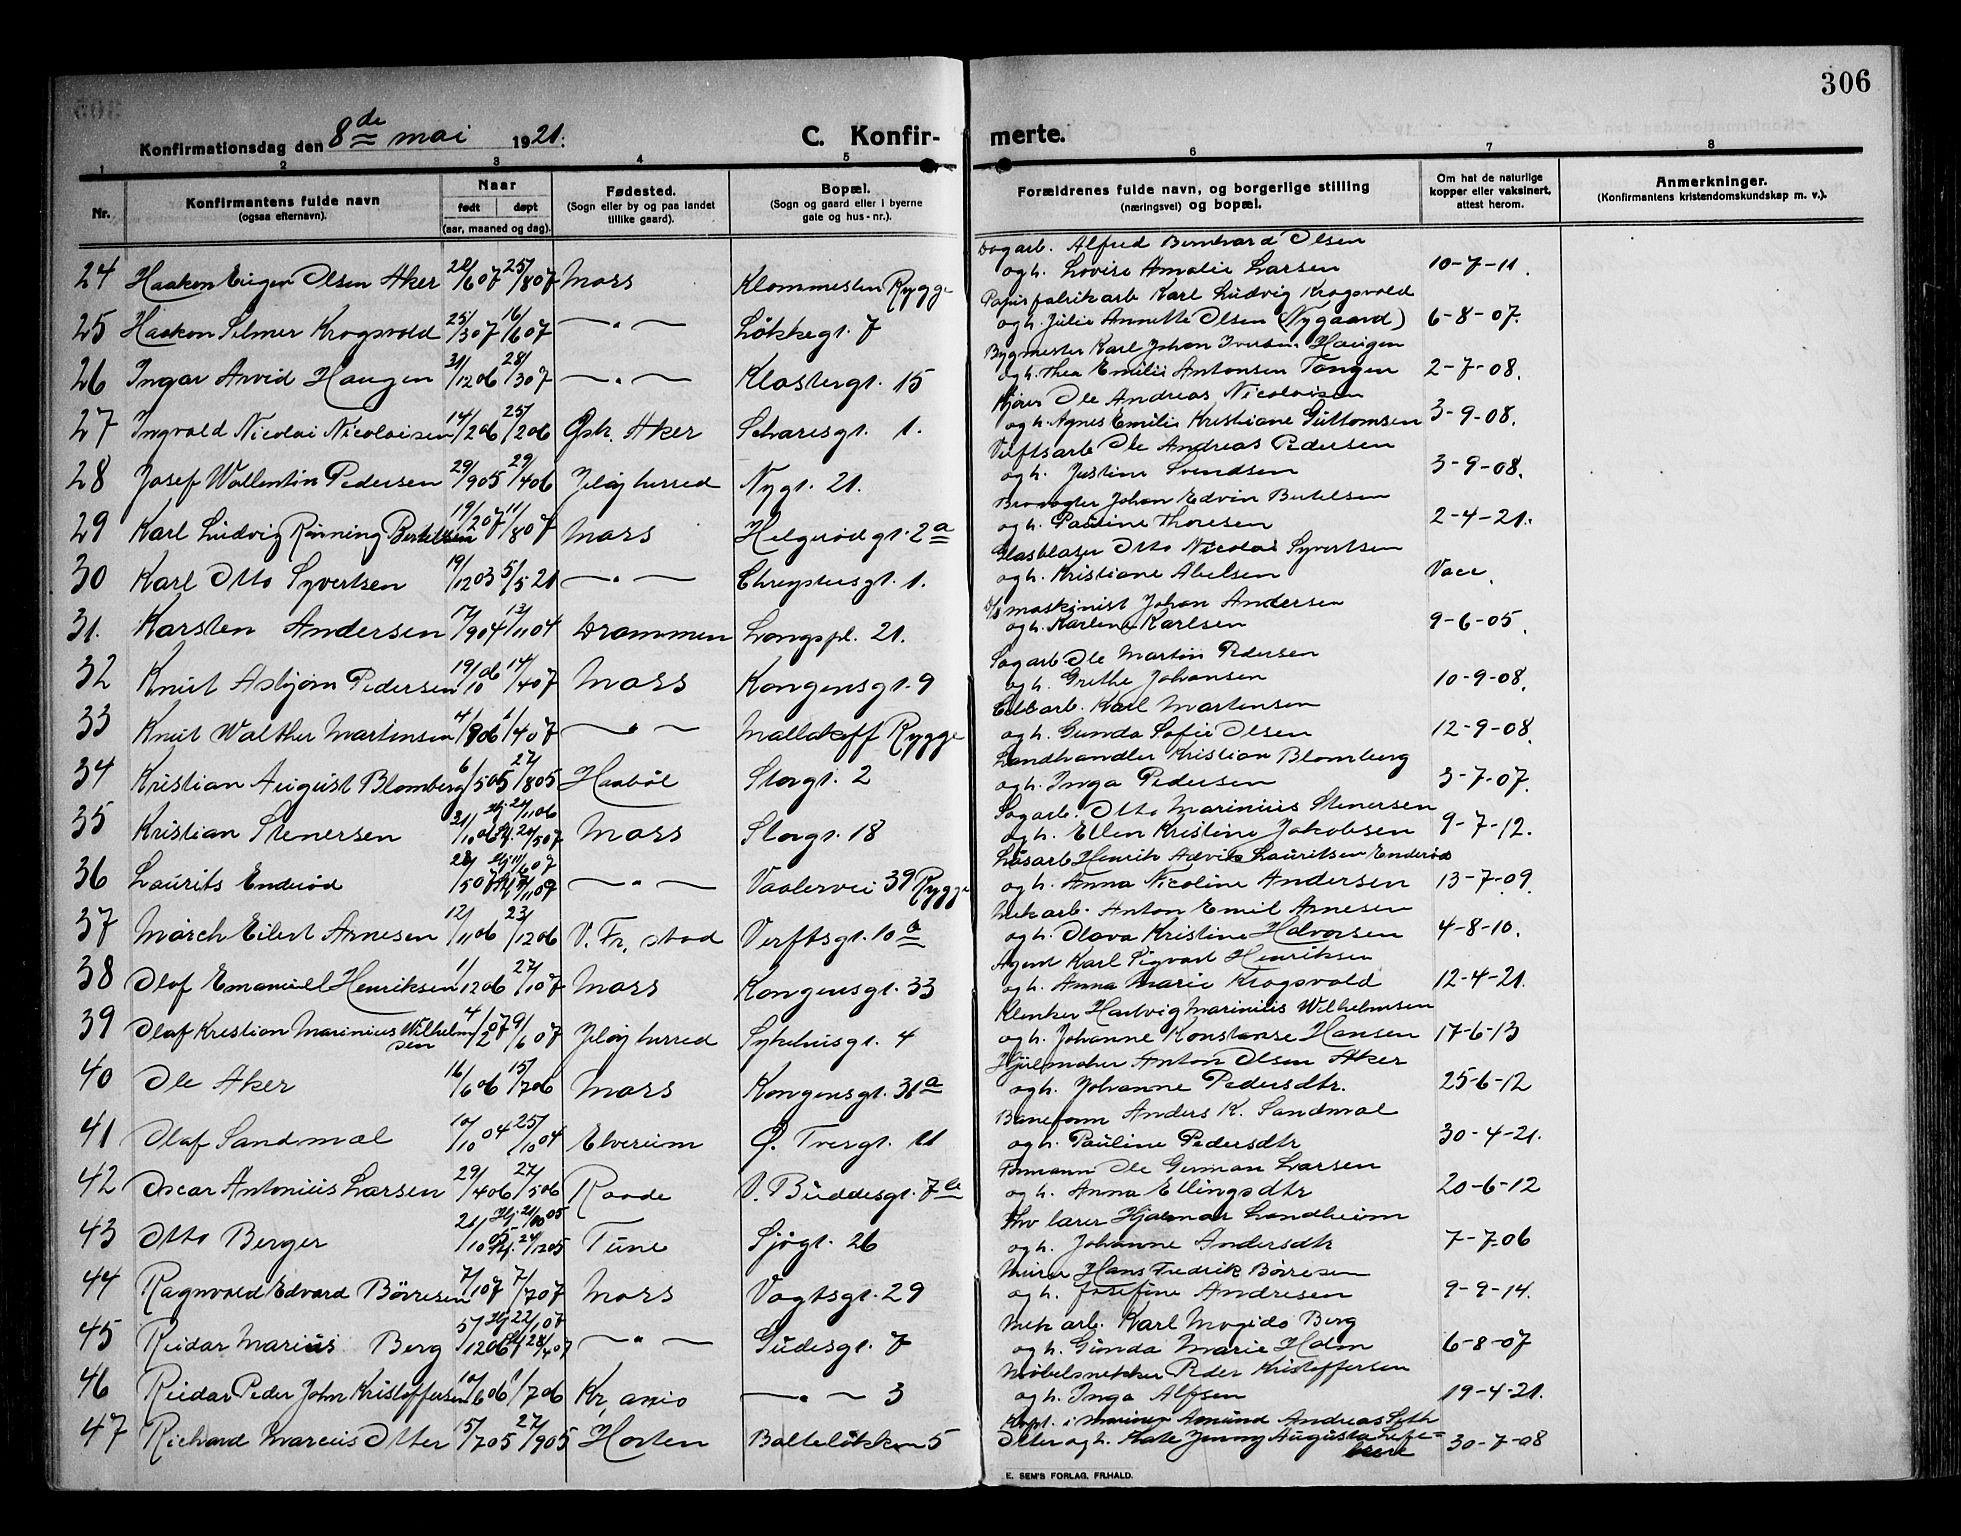 306
Konfirmationsdag den 8de mai 1921.
C. Konfirmerte.
1 2 3 4 5 6 7 8
Nr.
Konfirmantens fulde navn
(ogsaa efternavn).
Naar
født døpt
(aar, maaned og dag).
Fødested.
(Sogn eller by og paa landet
tillike gaard).
Bopæl.
(Sogn og gaard eller i byerne
gate og hus-nr.).
Forældrenes fulde navn, og borgerlige stilling
(næringsvei) og bopæl.
Om hat de naturlige
kopper eller vaksinert,
attest herom.
Anmerkninger.
(Konfirmantens kristendomskundskap m. v.).
Dagarb. Alfred Bernhard Olsen
24 Haakon Eugen Olsen Aker 28/6 07 25/8 07 Moss Klommesten Rygge og h. Lovise Amalie Larsen 10-7-11.
Papirfabrikarb Karl Ludvig Krogsvold
25 Haakon Selmer Krogsvold 25/3 07 16/6 07 —„— Løkkegt. 7 og h. Julie Annette Olsen (Nygaard) 6-8-07.
Bygmester Karl Johan Iversen Haugen
26 Ingar Arvid Haugen 31/12 06 28/3 07 —„— Klostergt. 15 og h. Thea Emilie Antonsen Tangen 2-7-08.
Kjører Ole Andreas Nicolaisen
27 Ingvald Nicolai Nicolaisen 14/2 06 25/2 06 Gsk. Aker Scharesgt. 1. og h. Agnes Emilie Kristiane Guttomsen 3-9-08.
Verftsarb Ole Andreas Pedersen
28 Josef Wallentin Pedersen 29/9 05 29/4 06 Jeløy herred Nygt. 21. og h. Justine Svendsen 3-9-08.
Brovogter Johan Edvin Bertelsen
29 Karl Ludvig Rønning Bertelsen 19/2 07 11/8 07 Moss Helgerødgt. 2a og h. Pauline Thoresen 2-4-21.
Glasblaser Otto Nicolai Syvertsen
30 Karl Otto Syvertsen 19/12 03 5/5 21 —„— Chrystiesgt. 1. og h. Kristiane Abelsen Vacc.
D/S maskinist Johan Andersen
31. Karsten Andersen 17/9 04 13/11 04 Drammen Langspl. 21. og h. Karline Karlsen 9-6-05.
Sagarb Ole Martin Pedersen
32 Knut Asbjørn Pedersen 19/10 06 14/4 07 Moss Kongensgt. 9 og h. Grethe Johansen 10-9-08.
Cellarb. Karl Martensen
33 Knut Walther Martensen 4/8 06 1/4 07 —„— Mallakoff Rygge og h. Gunda Sofie Olsen 12-9-08.
Landhandler Kristian Blomberg
34 Kristian August Blomberg 6/5 05 27/8 05 Haabøl Storgt. 2 og h. Inga Pedersen 3-7-07.
Sagarb. Otto Marinius Stenersen
35 Kristian Stenersen 31/10 06 Hj. 24/11 06 Kj. 20/5 07 Moss Storgt. 18 og h. Ellen Kristine Jakobsen 9-7-12.
Løsarb Henrik Advik Lauritsen Enderød
36 Laurits Enderød 28/5 07 —„— Vaalervei 39 Rygge og h. Anna Nicoline Andersen 13-7-09.
Mek arb. Anton Emil Arnesen
37 March Eilert Arnesen 12/11 06 23/12 06 V. Fr. stad Verftsgt. 10b og h. Olava Kristine Halvorsen 4-8-10.
Agent Karl Sigvart Henriksen
38 Olaf Emanuel Henriksen 1/12 06 27/10 07 Moss Kongensgt. 33 og h. Anna Marie Krogsvold 12-4-21.
Klenker Hartvig Marinius Wilhelmsen
39 Olaf Kristian Marinius Wilhelmsen 4/2 07 9/6 07 Jeløy herred Sykehusgt. 4 og h. Johanne Konstanse Hansen 17-6-13
Hjulmaker Anton Olsen Aker
40 Ole Aker 16/6 06 15/7 06 Moss Kongensgt. 31a og h. Johanne Pedersdtr. 25-6-12
Baneform Anders K. Sandmæl
41 Olaf Sandmæl 10/10 04 25/10 04 Elverum Ø. Tvergt. 11 og h. Pauline Pedersdtr 30-4-21.
Formann Ole German Larsen
42 Oscar Antonius Larsen 29/4 06 27/5 06 Raade V. Buddesgt. 7b og h. Anna Ellingsdtr 20-6-12
Hv lærer Hjalmar Landheim
43 Otto Berger 21/10 05 Kj. 24/12 05 Tune Sjøgt. 26 og h. Johanne Andersdtr 7-7-06
Murer Hans Fredrik Børresen
44 Ragnvald Edvard Børresen 7/1 07 7/7 07 Moss Vogtsgt. 29 og h. Josefine Andresen 9-9-14.
Mek arb. Karl Mogido Berg
45 Reidar Marius Berg 5/12 06 Hj 22/1 07 Kj 28/4 07 —„— Gudesgt. 7 og h. Gunda Marie Holm 6-8-07
Møbelsnekker Peder Kristoffersen
46 Reidar Peder John Kristoffersen 10/6 06 1/7 06 Kr. ania —„— 3 og h. Inga Alfsen 19-4-21.
Kapt. i marinen Amund Andreas Seth
47 Richard Marcus Otter 5/7 05 27/9 05 Horten Balteløkken 5 Otter og h. Kate Jenny Augusta Lefe- 30-7-08
E. SEM'S FORLAG, FR.HALD.